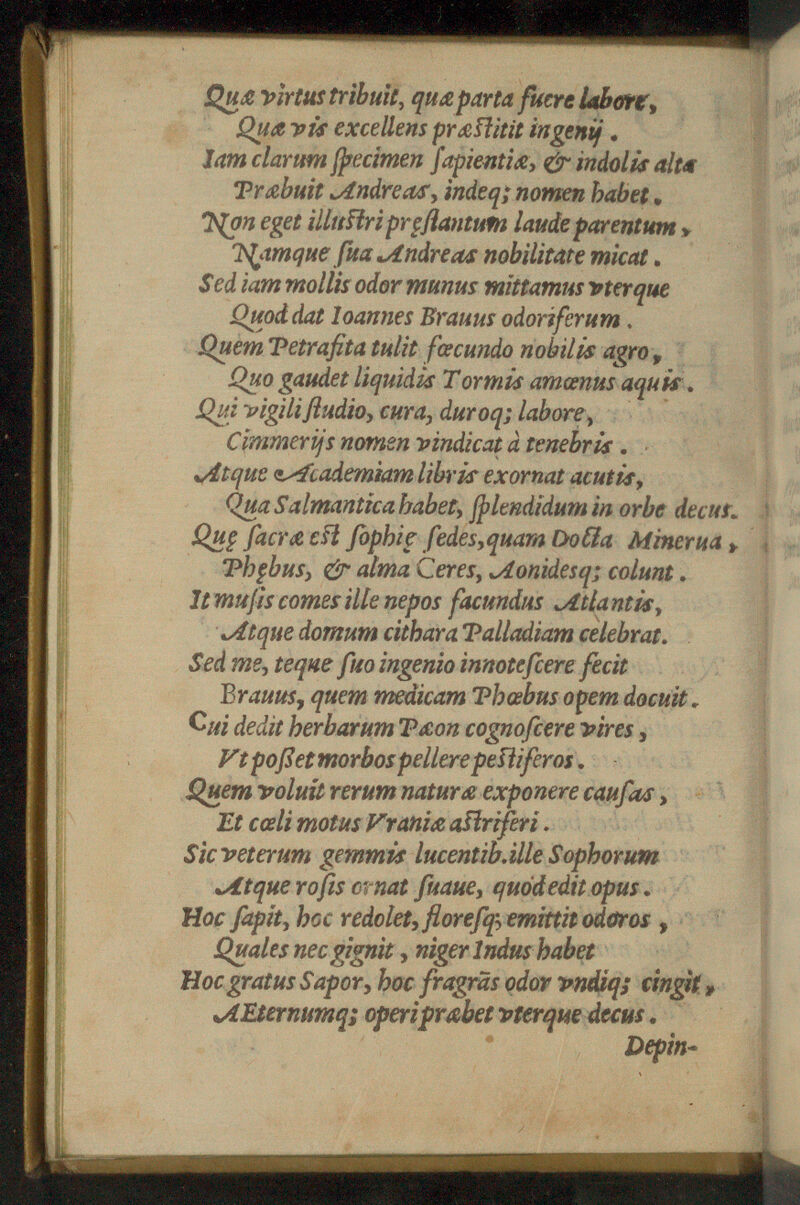 Quæ virtus tribuit, quæ parta fuere labore,
Quæ vis excellens præſtitit ingenij .
Iam clarum ſpecimen ſapientiæ, & indolis altæ
Præbuit Andreas, indeq; nomen habet .
Non eget illuſtri pręſtantum laude parentum ,
Namque ſua Andreas nobilitate micat .
Sed iam mollis odor munus mittamus vterque
Quod dat Ioannes Brauus odoriferum .
Quem Petrafita tulit fœcundo nobilis agro,
Quo gaudet liquidis Tormis amœnus aquis .
Qui vigili ſtudio, cura, duroq; labore,
Cimmerijs nomen vindicat à tenebris .
Atque Academiam libris exornat acutis,
Qua Salmantica habet, ſplendidum in orbe decus.
Quę ſacra eſt ſophię ſedes, quam Docta Minerua ,
Phębus, & alma Ceres, Aonidesq; colunt .
It muſis comes ille nepos facundus Atlantis,
Atque domum cithara Palladiam celebrat.
Sed me, teque ſuo ingenio innoteſcere fecit
Brauus, quem medicam Phœbus opem docuit .
Cui dedit herbarum Pæon cognoſcere vires ,
Vt poſſet morbos pellere peſtiferos .
Quem voluit rerum naturæ exponere cauſas ,
Et cœli motus Vraniæ aſtriferi .
Sic veterum gemmis lucentib. ille Sophorum
Atque roſis ornat ſuaue, quod edit opus .
Hoc ſapit, hoc redolet, floreſq; emittit odoros ,
Quales nec gignit , niger Indus habet
Hoc gratus Sapor, hoc fragrãs odor vndiq; cingit ,
AEternumq; operi præbet vterque decus .
Depin-